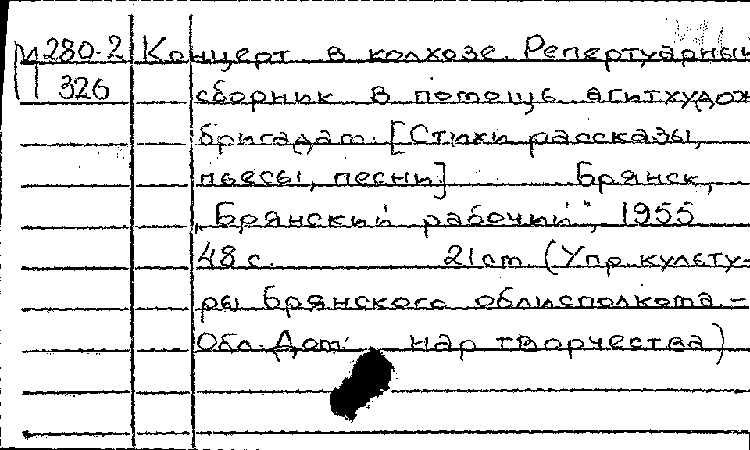 М 280-2 Концерт в колхозе. Репертуарный
326 сборник в помощь агитхудож
бригадам. [Стихи, рассказы,
пьесы, песни] Брянск,
„Брянский рабочий", 1955
48 с. 21 см (Упр. культу-
ры Брянского облисполкома. –
Обл. Дом нар творчества)